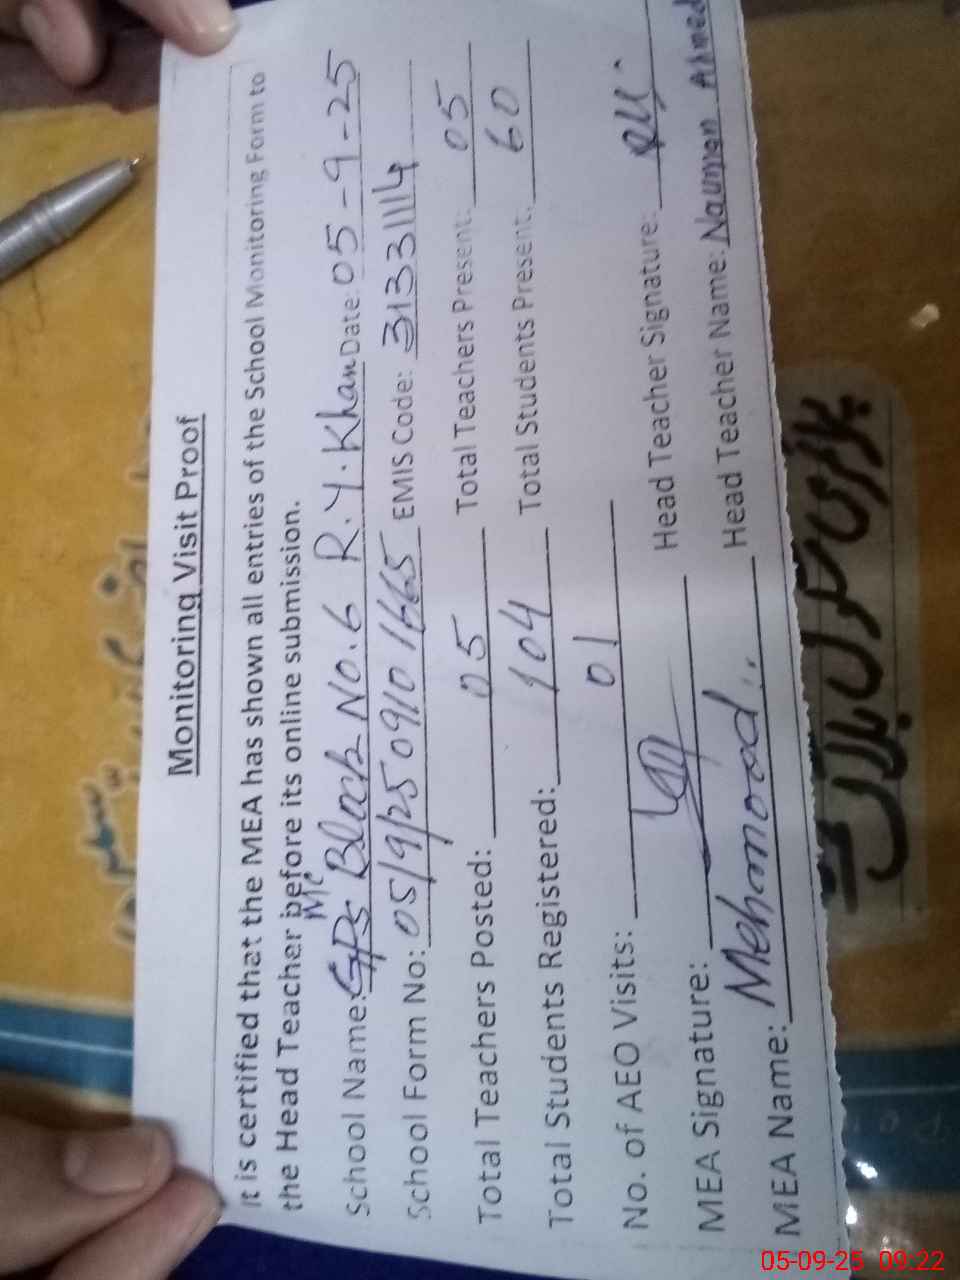 Monitoring Visit Proof
It is certified that the MEA has shown all entries of the School Monitoring Form to
the Head Teacher before its online submission.
School Name: GPS MC Block No.6 R.Y.Khan Date: 05-9-25
School Form No: 05/9/25 0910 1665 EMIS Code: 31331114
Total Teachers Posted: 05 Total Teachers Present: 05
Total Students Registered: 104 Total Students Present: 60
No. of AEO Visits: 01
MEA Signature: Head Teacher Signature:
MEA Name: Mehmood Head Teacher Name: Nauman Ahmed
05-09-25 09:22